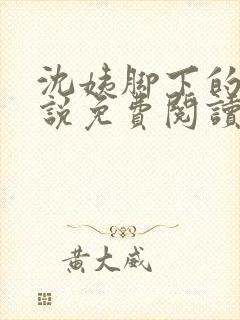 沈姨脚下的
說免費閱讀
黃大威